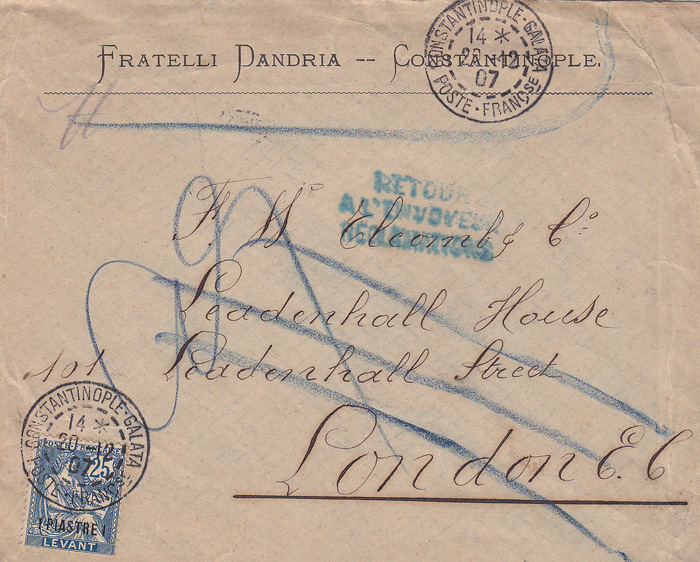 FRATELLI DANDRIA -- CONSTANTINOPLE.
CONSTANTINOPLE-GALATA
14 *
20 -12
07
POSTE-FRANÇSE
RETOUR
A L'ENVOYEUR
F. W. Elcomb & Co
Leadenhall House
101 Leadenhall Street
London E.C
CONSTANTINOPLE-GALATA
14 *
20 -12
07
25
1 PIASTRE 1
LEVANT